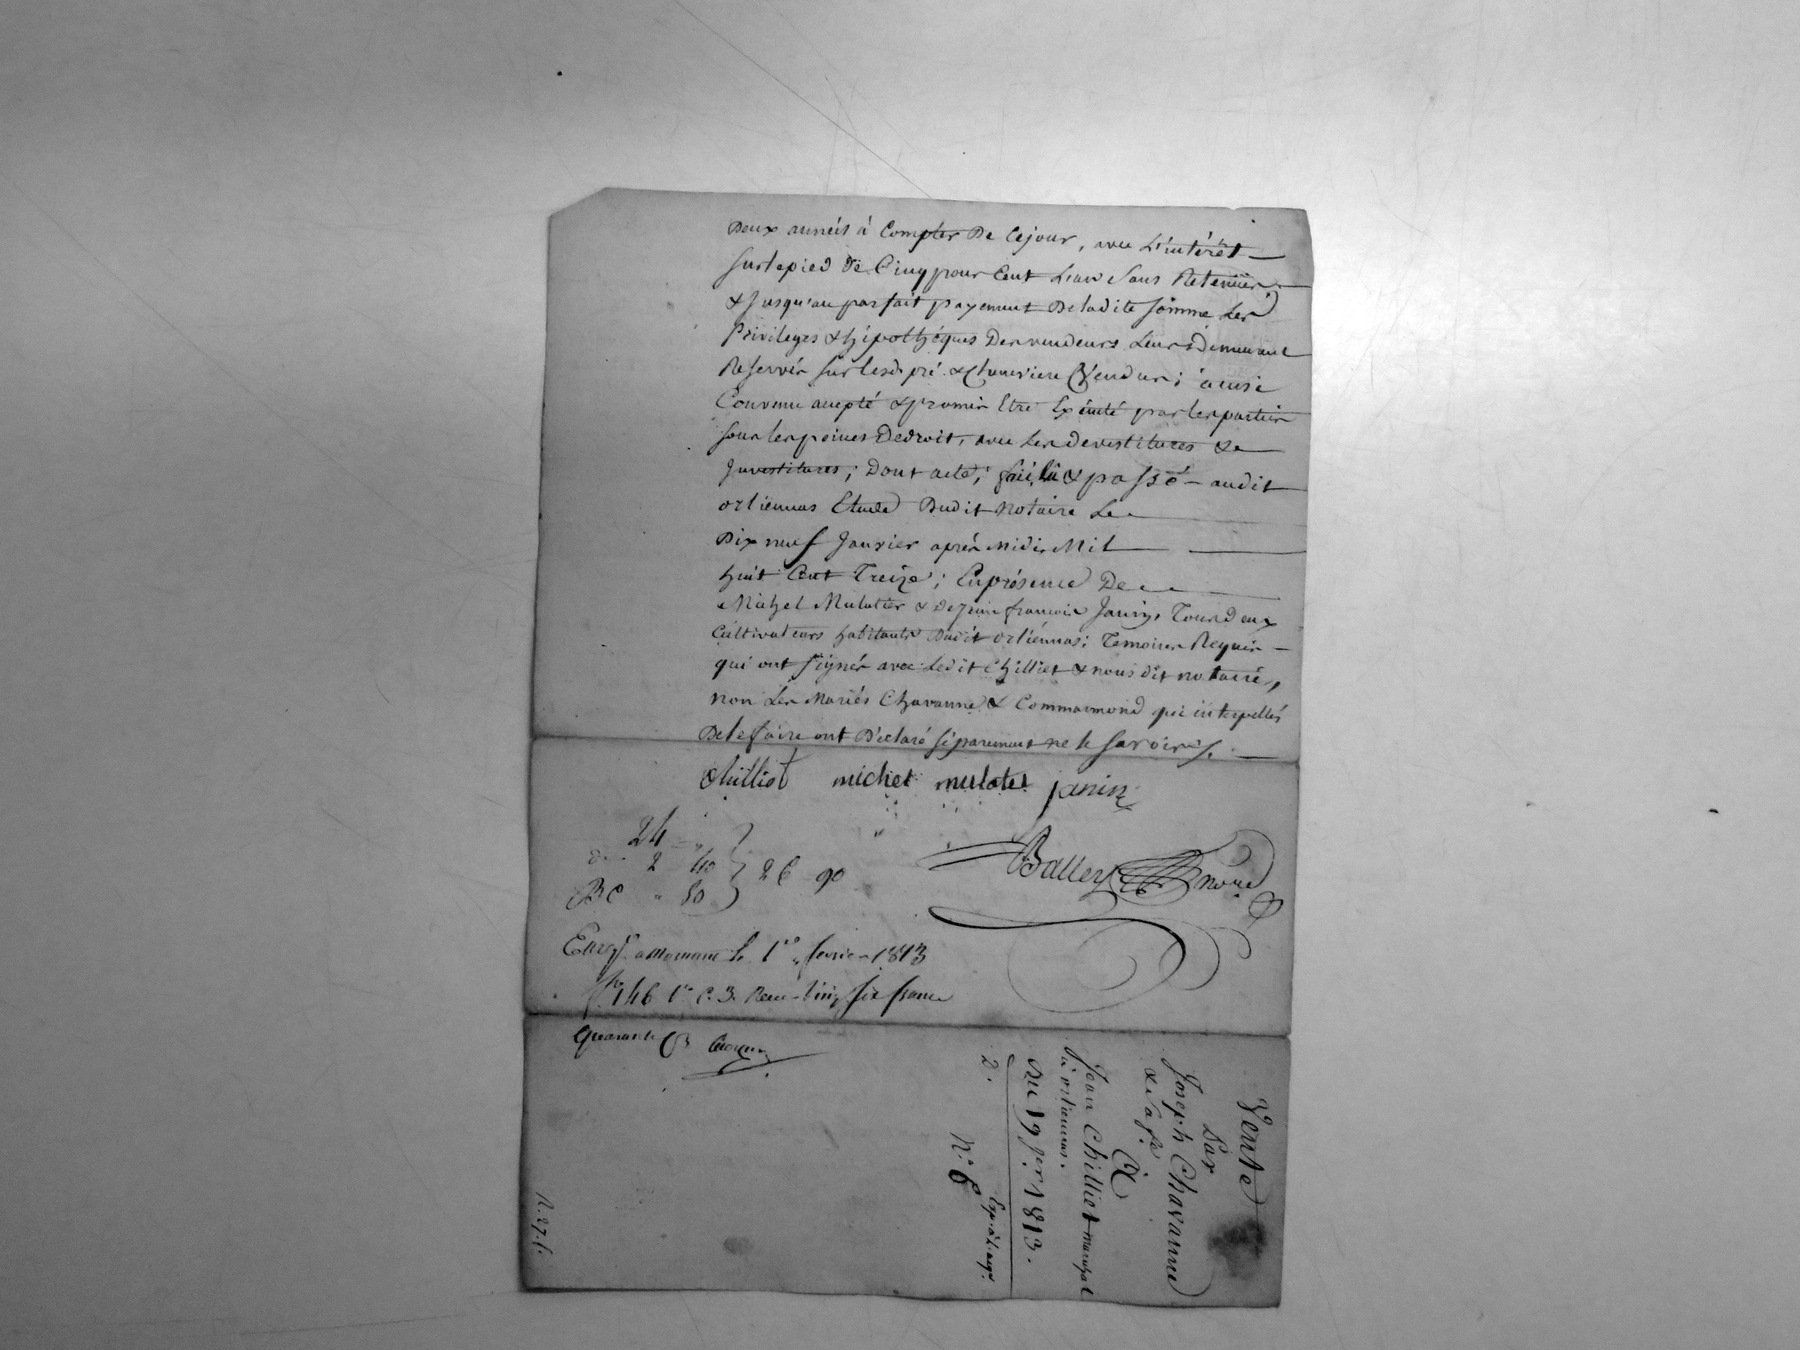 Deux années à Compter De Cejour, avec L'intérêt
Surlepied de Cinq pour Cent L'an Sans Retenüe
& Jusqu'au parfait payement Deladite Somme Les
Privileges & hipothéques Des vendeurs Leurs Demeurant
Reservés Sur lesd. pré & Chenevieres Vendus; ainsi
Convenu accepté & promis Etre Exécuté par les parties
Sous les peines Dedroit, avec Les Devestitures &
Investitures; Dont acte; fait, lû & passé audit
orliénnas Etude Dudit Notaire Le
Dix neuf Janvier après Midi Mil
huit Cent Treize; Enprésence De
Michel Mulatier & De Jean françois Janin, Tous Deux
Cultivateurs habitants Dudit orliénnas; Temoins Requis
qui ont Signés avec Ledit Chilliet & nous dit notaire,
non Les Mariés Chavanne & Commarmond qui interpellés
Delefaire ont Déclaré Séparement ne le Savoir
Chilliet michel mulatie janin
24 "
2 40
" 50
26 90
Balley nore
Enreg. a Mornant le 1er fevrier 1813
fo 146 Ro C. 3. Recu vingt six francs
quarante
Vente
Par
Joseph Chavanne
& Sa fe.
A
Jean Chilliet marechal
à orliennas.
Du 19 jer 1813.
2.
N.° 6
R. 27. f.